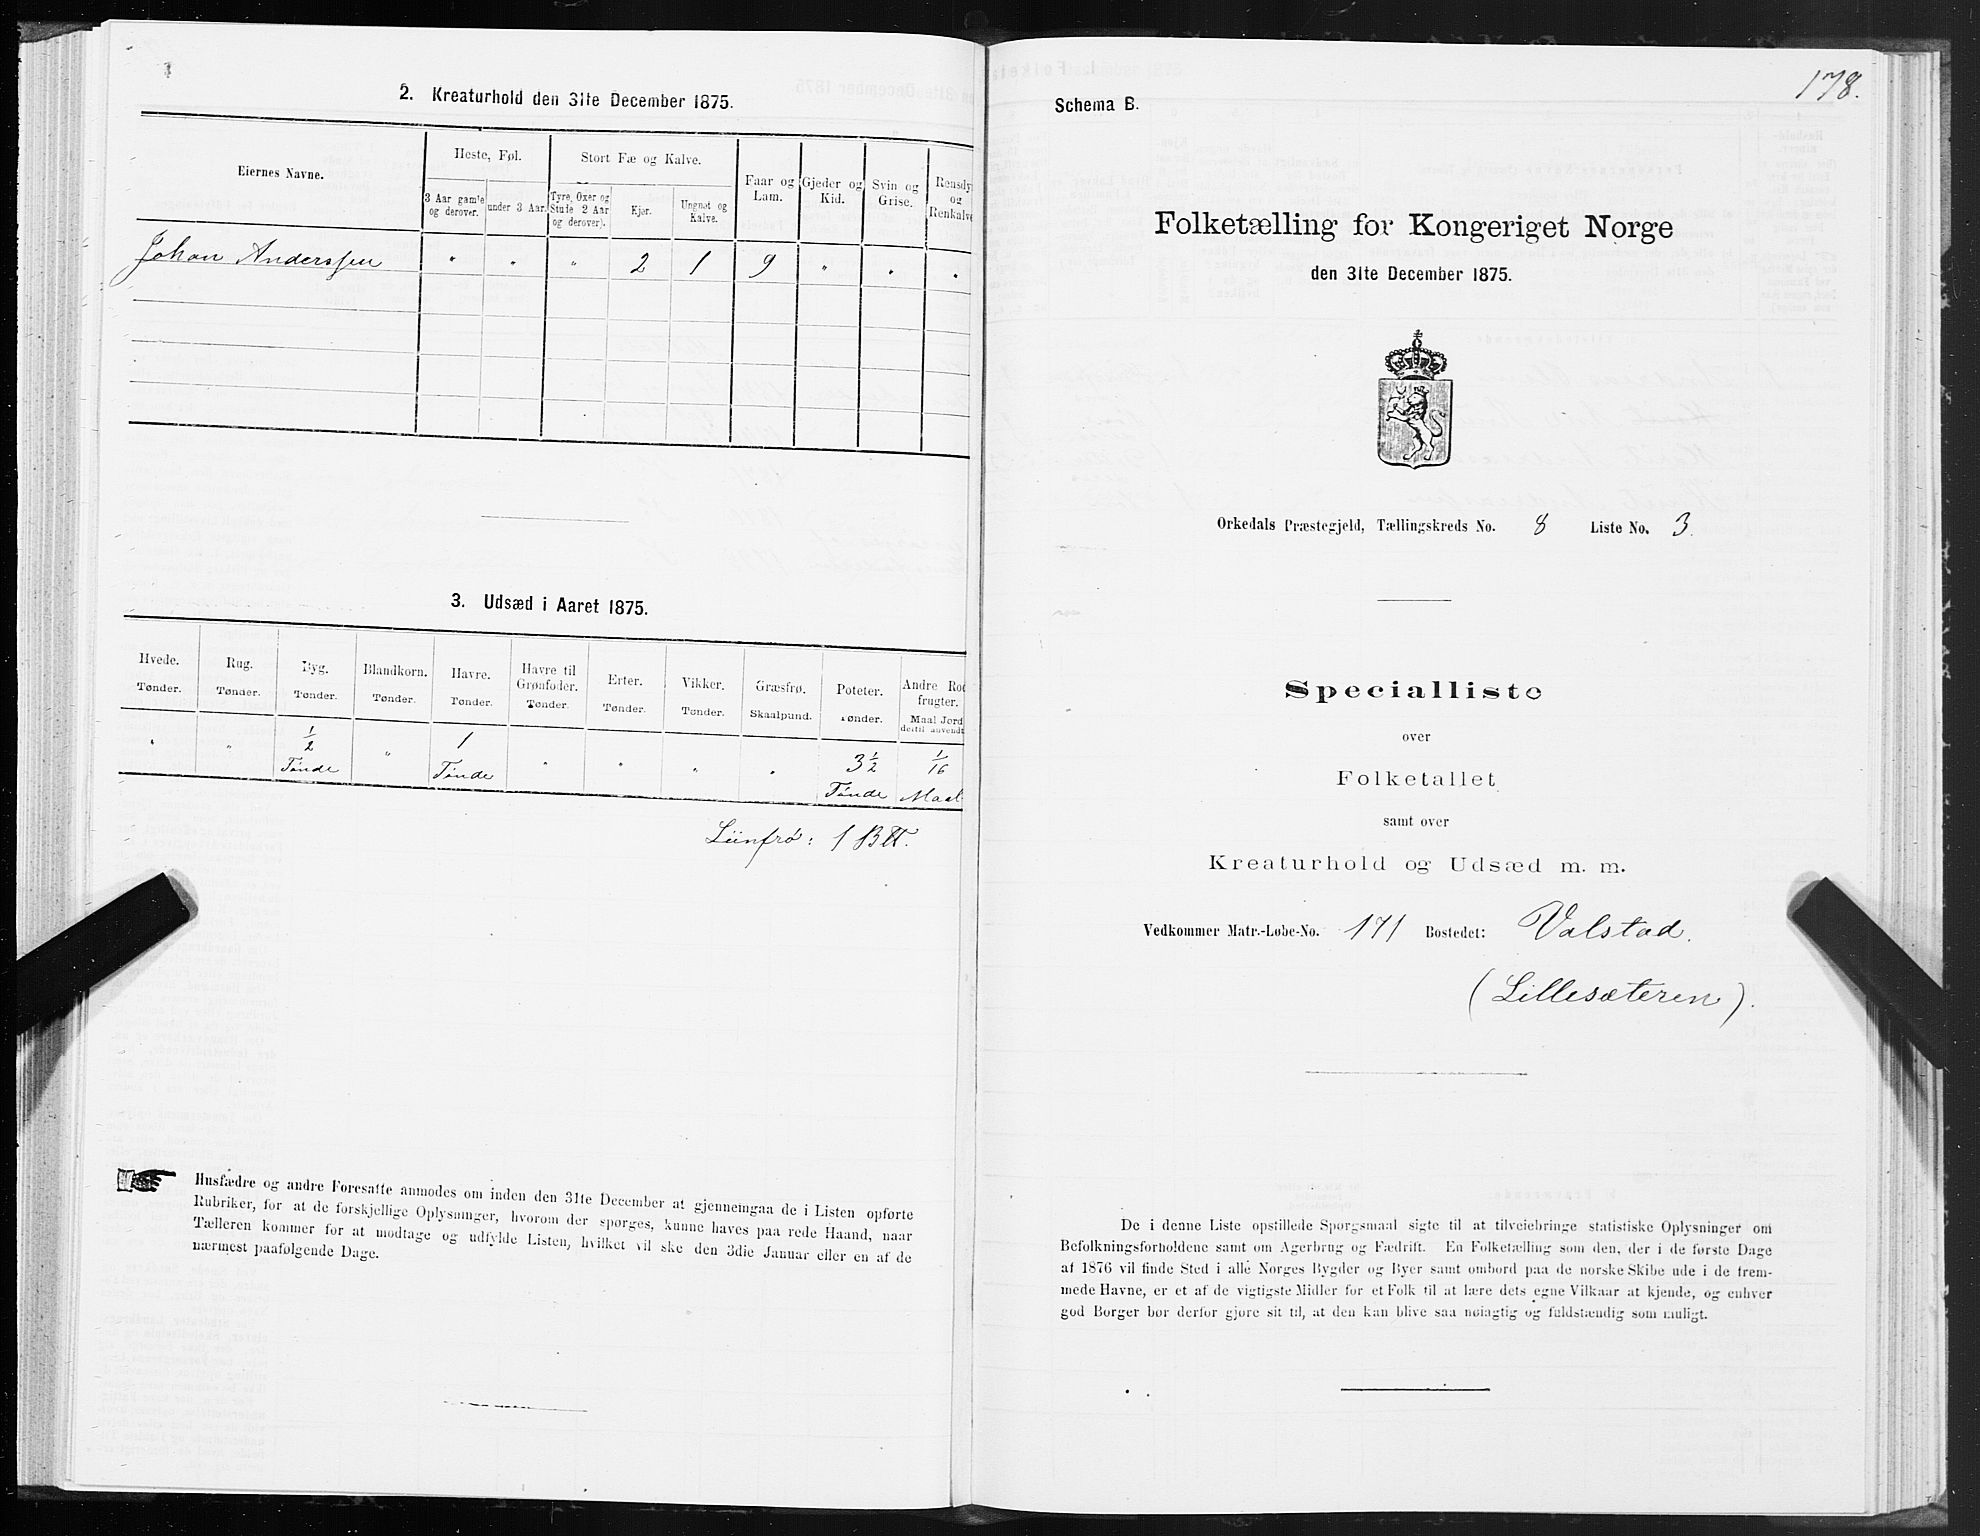 2. Kreaturhold den 31te December 1875.
Eiernes Navne.
Heste, Føl.
Stort Fæ og Kalve.
Faar og Lam.
Gjeder og Kid.
Svin og Grise.
Rensdy
og
Renkalve
3 Aar gamle og derover.
under 3 Aar.
Tyre, Oxer og Stude 2 Aar og derover).
Kjør.
Ungnøt og Kalve.
Johan Anderssen " " " 2 1 9 " " "
3. Udsæd i Aaret 1875.
Hvede. Rug. Byg. Blandkorn. Havre. Havre til Grønfoder. Erter. Vikker. Græsfrø. Poteter. Andre Rod frugter.
Tønder. Tønder. Tønder. Tønder. Tønder. Tønder. Tønder. Tønder. Skaalpund. Tønder. Maal Jord dertil anvendt
" " 1/2 Tønde " 1 Tønde " " " " 3 1/2 Tønde 1/16 Maal
Liinfrø: 1
Husfædre og andre Foresatte anmodes om inden den 31te December at gjennemgaa de i Listen opførte
Rubriker, for at de forskjellige Oplysninger, hvorom der spørges, kunne haves paa rede Haand, naar
Tælleren kommer for at modtage og udfylde Listen, hvilket vil ske den 3die Januar eller en af de
nærmest paafølgende Dage.
178.
Schema B.
Folketælling for Kongeriget Norge
den 31te December 1875.
Orkedals Præstegjeld, Tællingskreds No. 8 Liste No. 3.
Specialliste
over
Folketallet
samt over
Kreaturhold og Udsæd m. m.
Vedkommer Matr.-Løbe-No. 171 Bostedet: Valstad.
(Lillesæteren).
De i denne Liste opstillede Spørgsmaal sigte til at tilveiebringe statistiske Oplysninger om
Befolkningsforholdene samt om Agerbrug og Fædrift. En Folketælling som den, der i de første Dage
af 1876 vil finde Sted i alle Norges Bygder og Byer samt ombord paa de norske Skibe ude i de frem-
mede Havne, er et af de vigtigste Midler for et Folk til at lære dets egne Vilkaar at kjende, og enhver
god Borger bør derfor gjøre sit til, at den kan blive saa nøiagtig og fuldstændig som muligt.